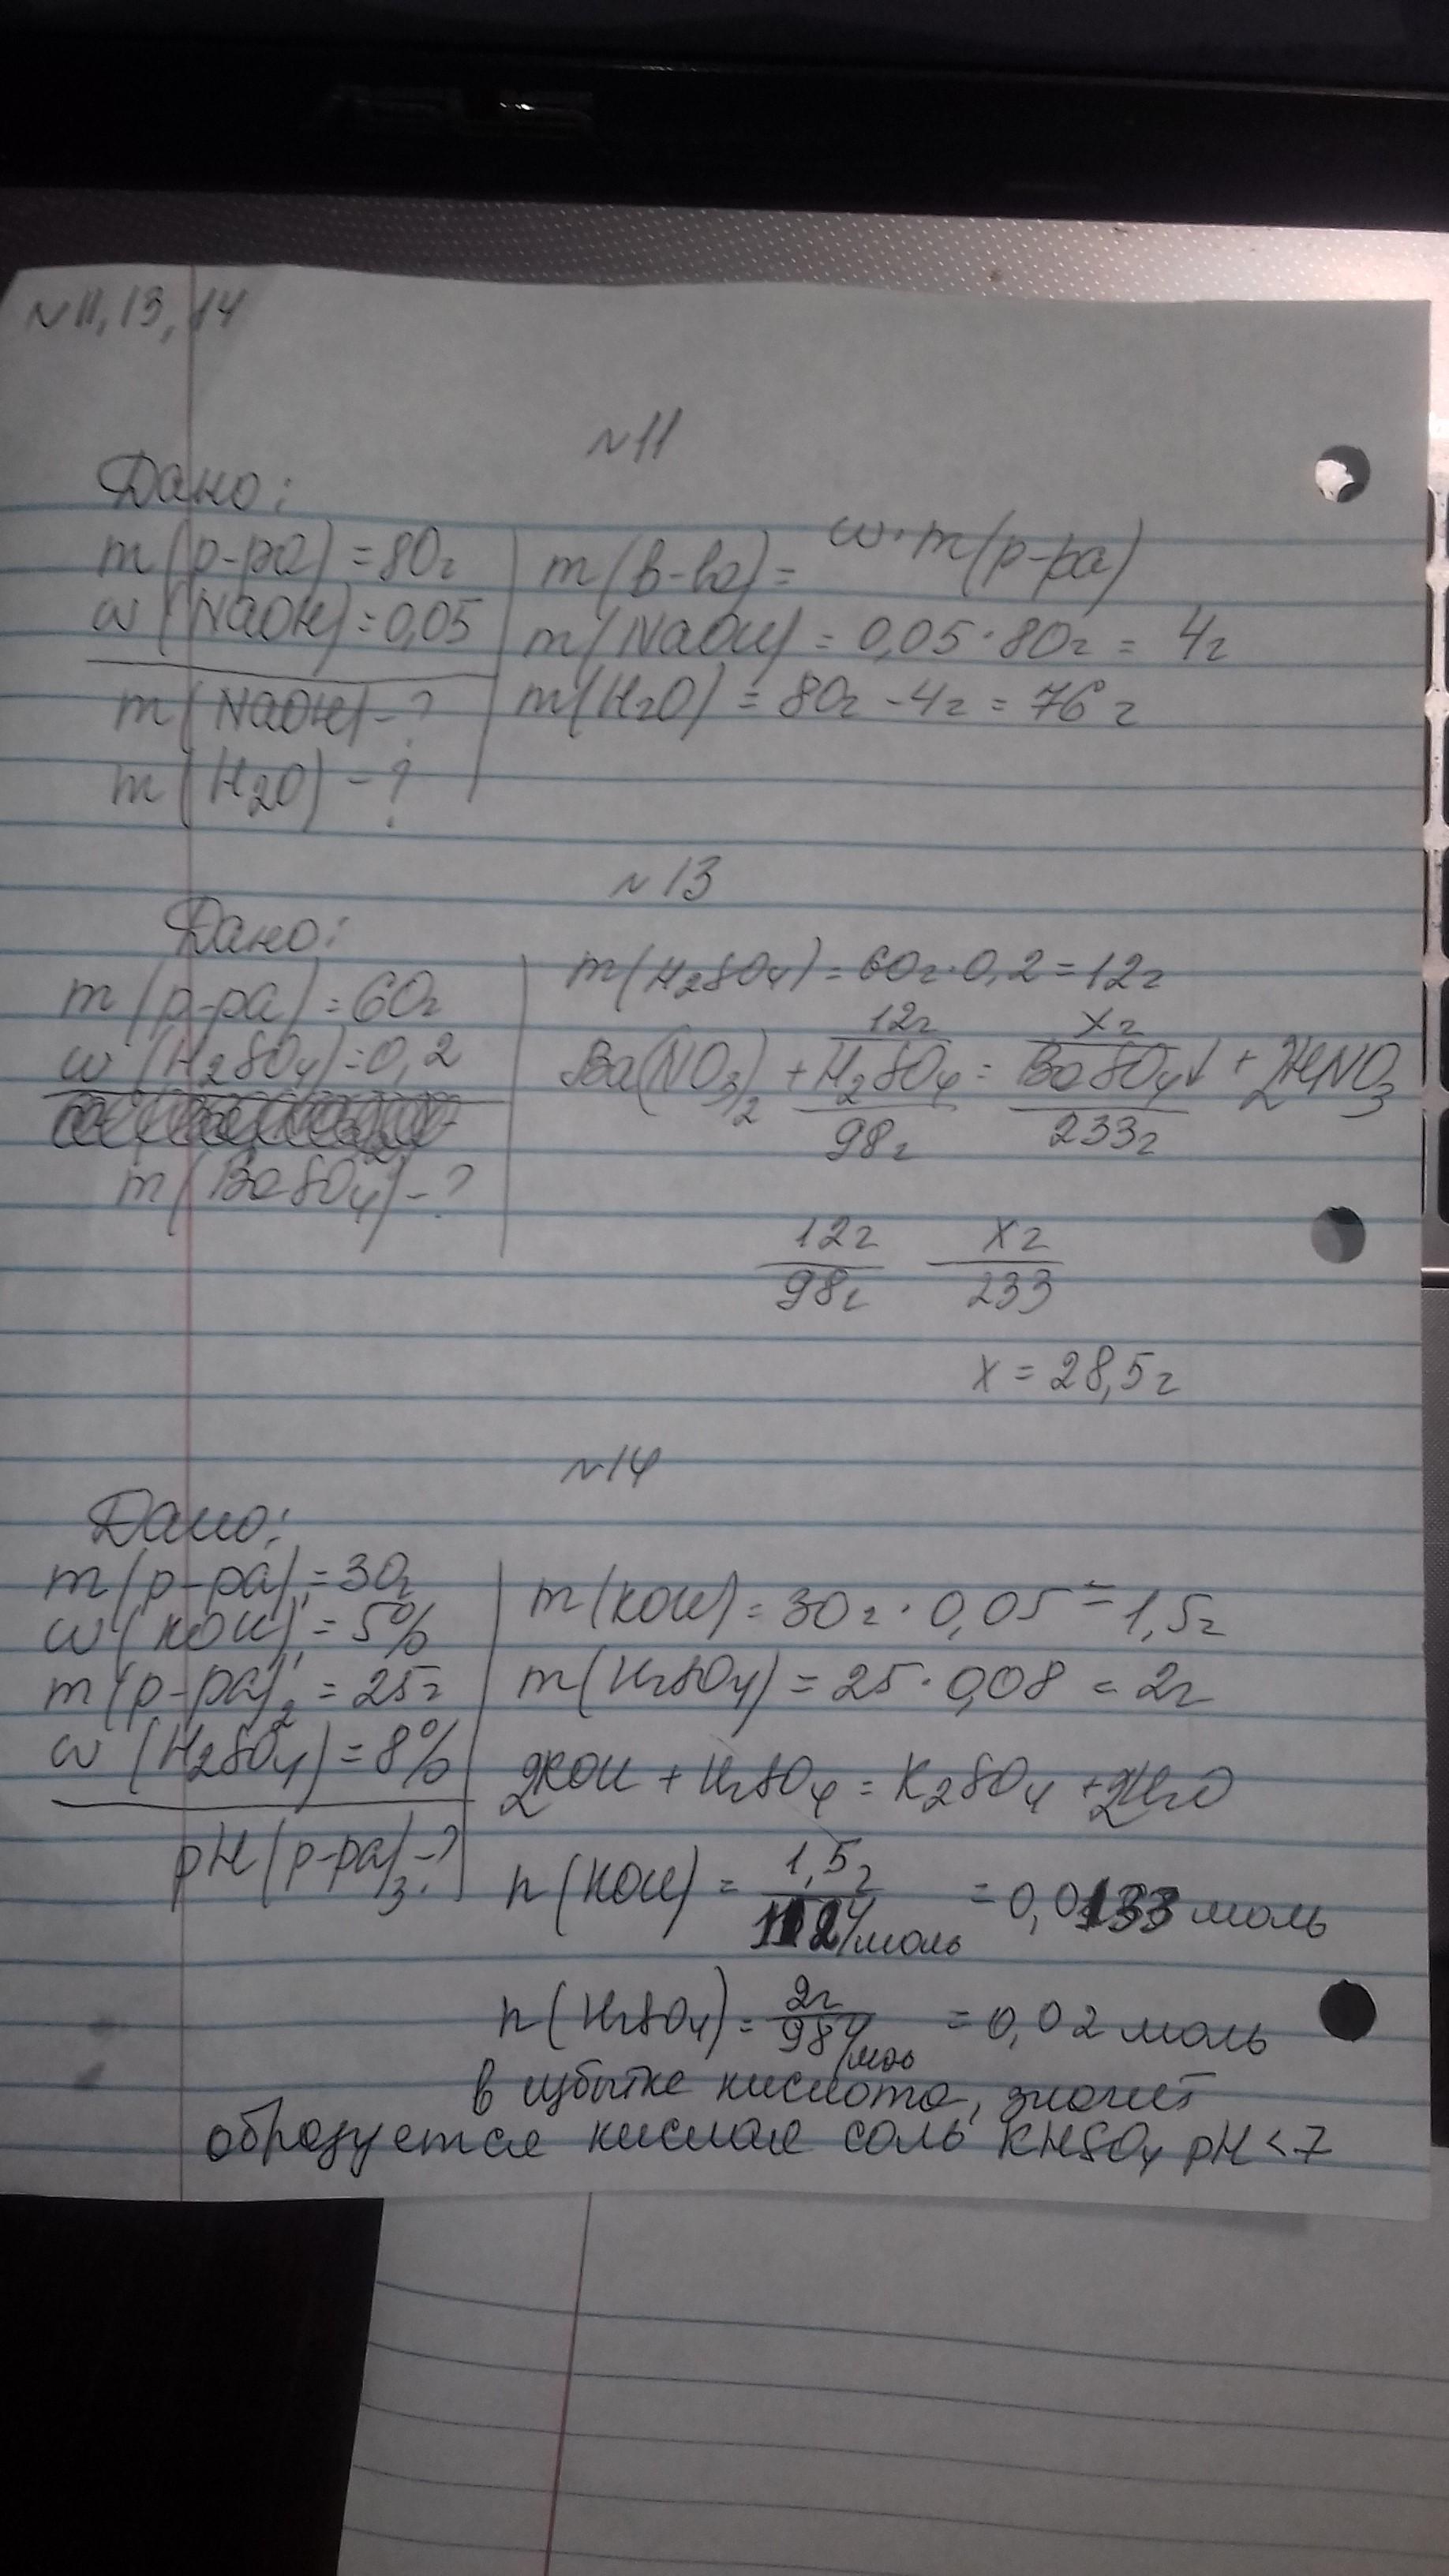 ASUS
№11, 13, 14
№11
Дано:
m(р-ра)=80г
ω(NaOH)=0,05
m(NaOH)-?
m(H2O)-?
m(в-ва)= ω·m(р-ра)
m(NaOH)=0,05·80г= 4г
m(H2O)=80г-4г=76г
№13
Дано:
m(р-ра)=60г
ω(H2SO4)=0,2
m(BaSO4)-?
m(H2SO4)=60г·0,2=12г
12г xг
Ba(NO3)2+H2SO4=BaSO4↓+2HNO3
98г 233г
12г xг
98г 233
x=28,5г
№14
Дано:
m(р-ра)1=30г
ω(KOH)1=5%
m(р-ра)2=25г
ω(H2SO4)=8%
pH(р-ра)3-?
m(KOH)=30г·0,05=1,5г
m(H2SO4)=25·0,08=2г
2KOH+H2SO4=K2SO4+2H2O
n(KOH)= 1,5г =0,0133 моль
112г/моль
n(H2SO4)= 2г =0,02 моль
98г/моль
в избытке кислота, значит
образуется кислая соль KHSO4 pH<7